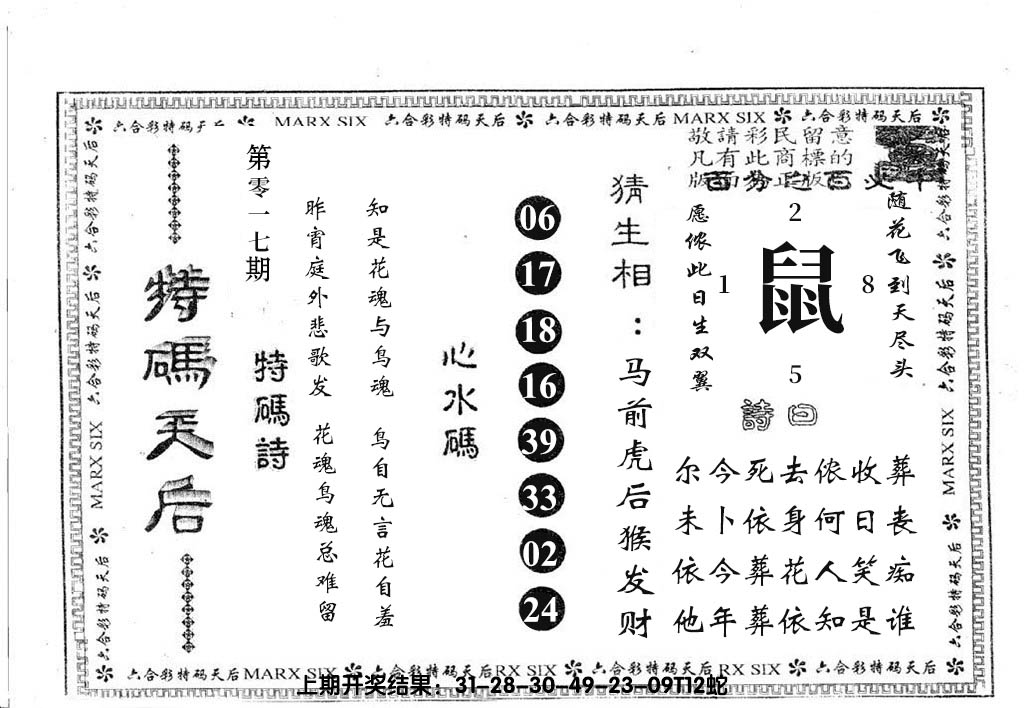 六合彩特码天后 MARX SIX 六合彩特码天后 六合彩特码天后 MARX SIX 六合彩特码天后
敬請彩民留意
凡有此商標的
版面為正版
随花飞到天尽头
2
1
鼠
8
5
愿侬此日生双翼
詩曰
尔今死去侬收葬
未卜侬身何日丧
依今葬花人笑痴
他年葬依知是谁
猜生相:马前虎后猴发财
06
17
18
16
39
33
02
24
心水碼
知是花魂与鸟魂 鸟自无言花自羞
昨宵庭外悲歌发 花魂鸟魂总难留
特碼詩
第零一七期
特碼天后
六合彩特码天后 六合彩特码天后 MARX SIX 六合彩特码天后
六合彩特码天后 六合彩特码天后 MARX SIX 六合彩特码天后
六合彩特码天后 MARX SIX 六合彩特码天后 RX SIX 六合彩特码天后 RX SIX 六合彩特码天后
上期开奖结果：31-28-30-49-23-09T12蛇